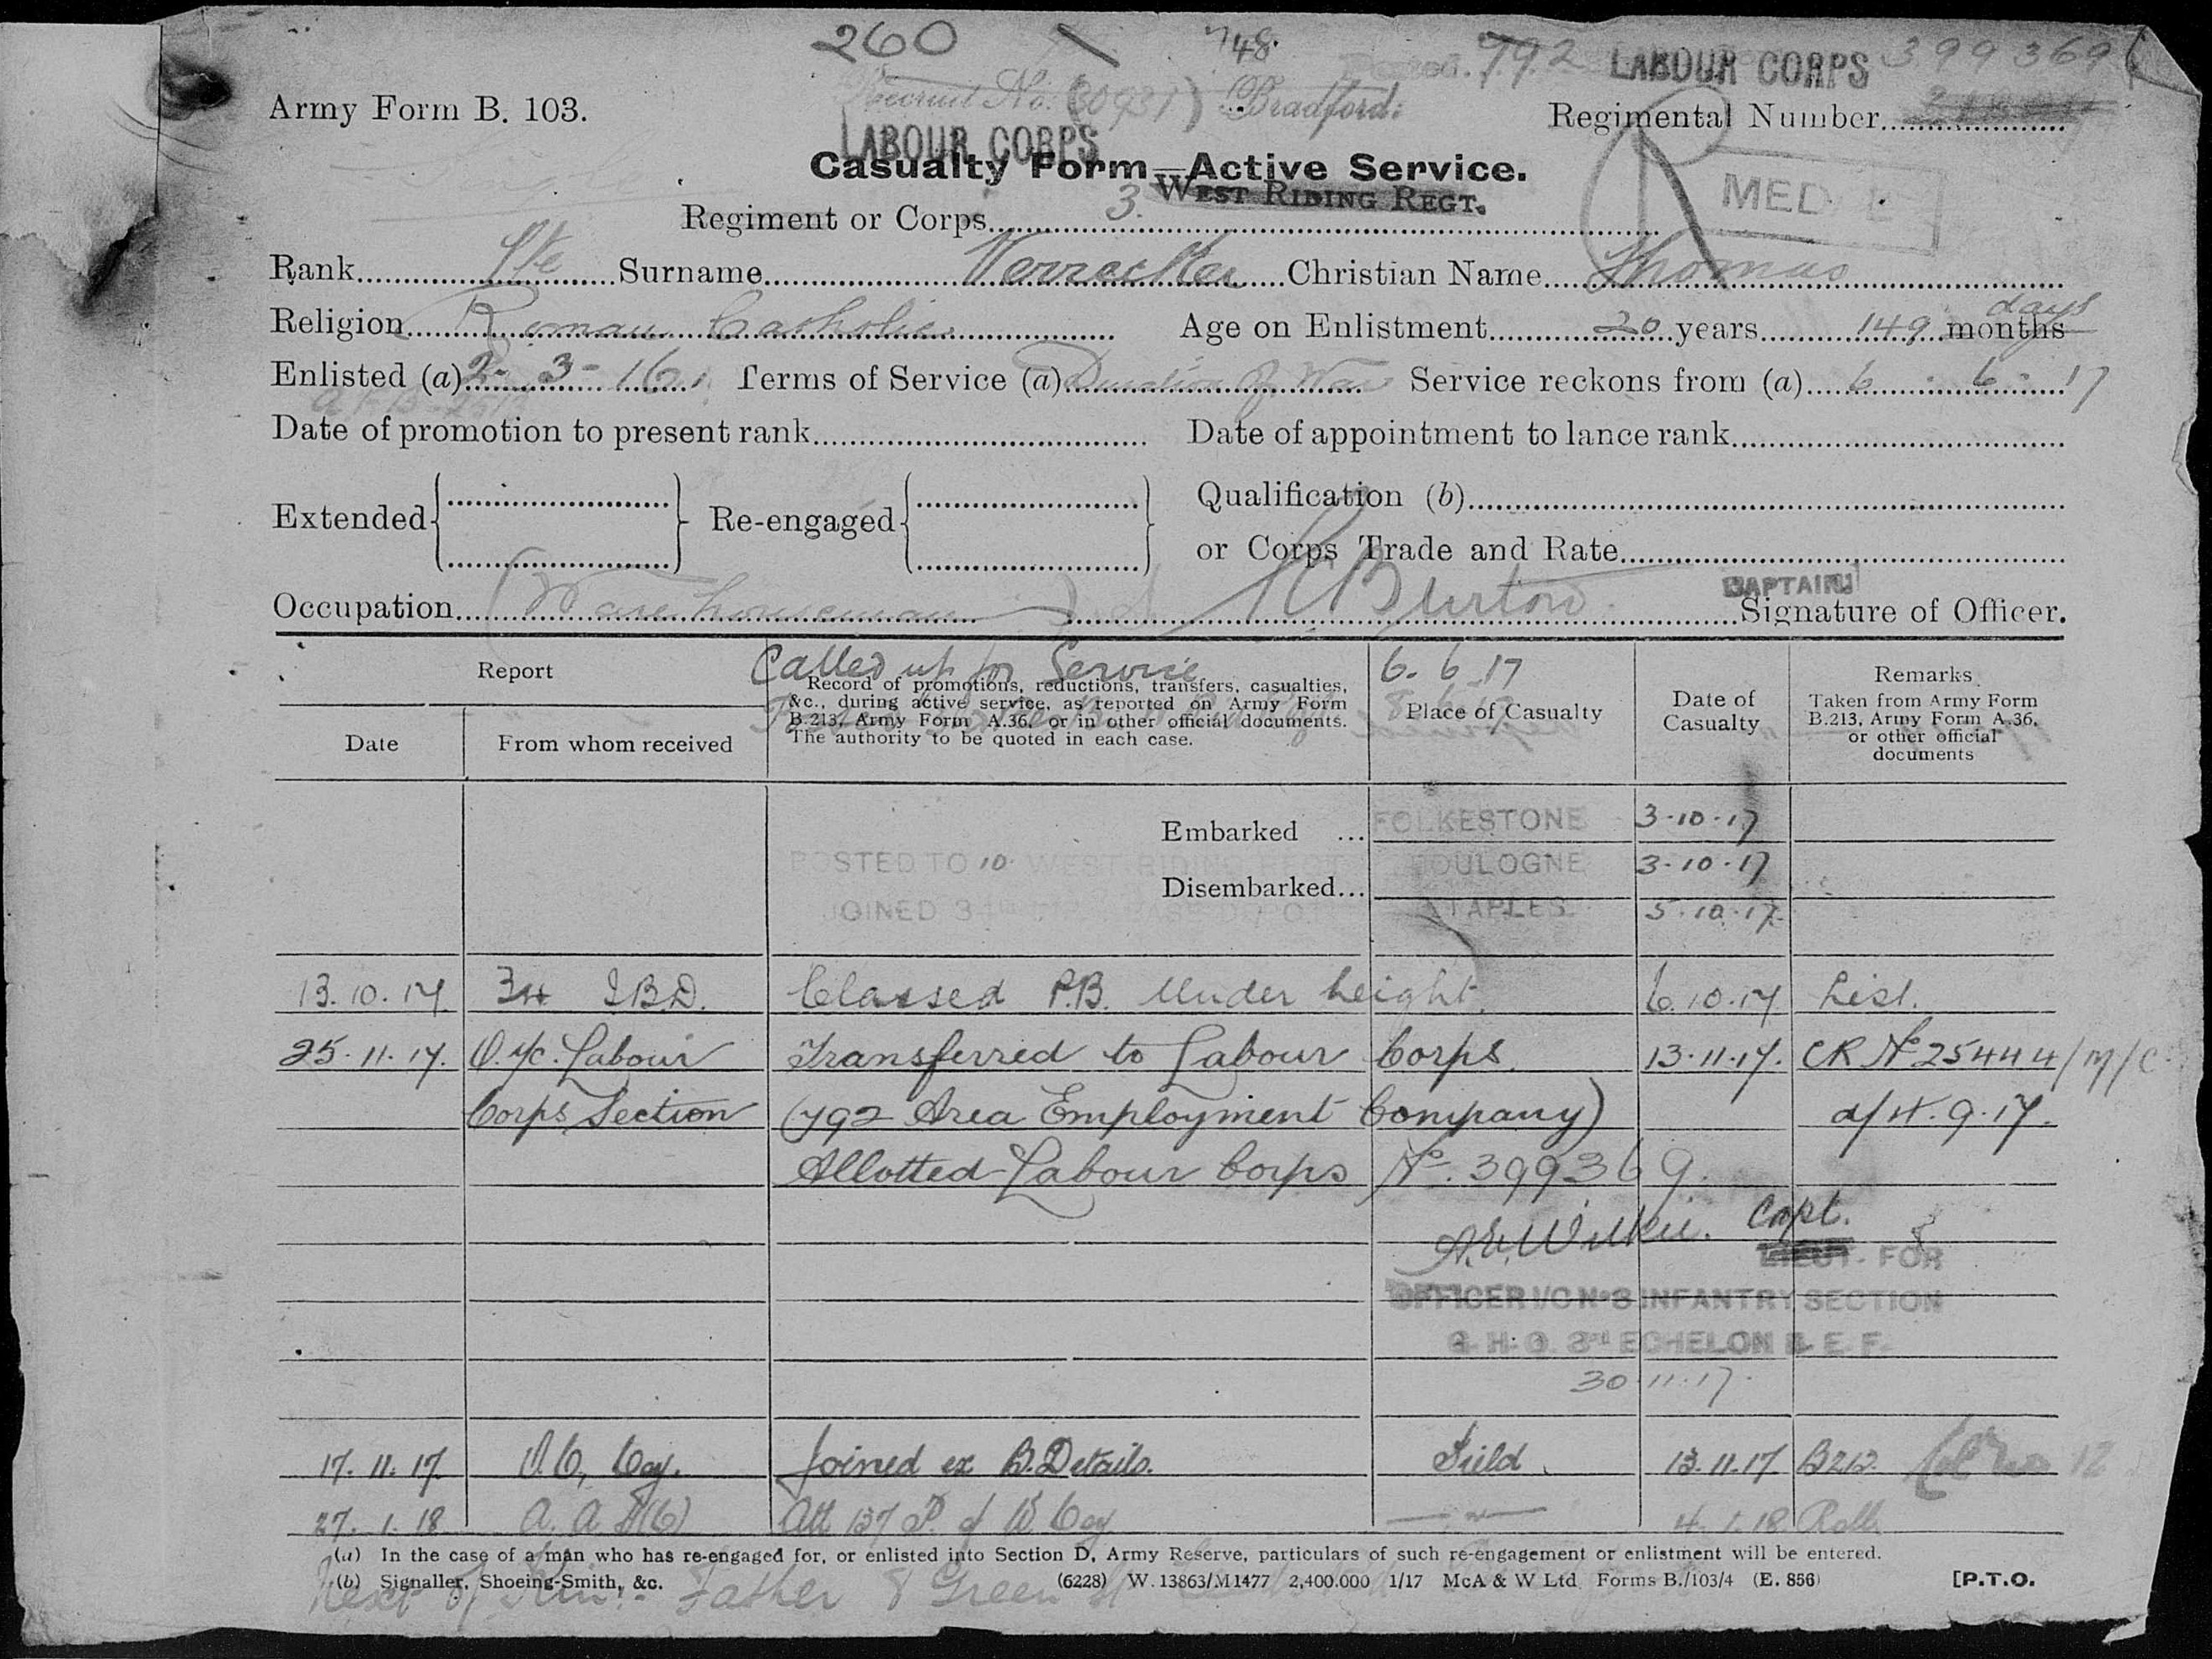 260 748.
792 LABOUR CORPS 399369
Recruit No. (30931) Bradford.
Army Form B. 103.
Regimental Number
LABOUR CORPS
Casualty Form—Active Service.
MED
3. WEST RIDING REGT.
Regiment or Corps
Rank Pte Surname Christian Name Thomas
Religion Roman Catholic Age on Enlistment 20 years 149 months days
Enlisted (a) 2-3-16 Terms of Service (a) Duration of War Service reckons from (a) 6-6-17
Date of promotion to present rank Date of appointment to lance rank
Extended Re-engaged Qualification (b)
or Corps Trade and Rate
CAPTAIN
Occupation Warehouseman Burton Signature of Officer.
Called up for Service 6.6.17
Report
Record of promotions, reductions, transfers, casualties, &c., during active service, as reported on Army Form B.213, Army Form A.36, or in other official documents. The authority to be quoted in each case.
Place of Casualty
Date of Casualty
Remarks
Taken from Army Form B.213, Army Form A.36, or other official documents
Date From whom received
Embarked ... FOLKESTONE 3-10-17
POSTED TO 10 WEST RIDING REGT BOULOGNE 3-10-17
Disembarked...
JOINED 34 BASE DEPOT ETAPLES 5-10-17
13.10.17 34 I.B.D. Classed P.B. Under height. 6.10.17 List.
25.11.17. O. i/c. Labour Transferred to Labour Corps. 13.11.17. CR No 25444/M/C
Corps Section (792 Area Employment Company) d/4.9.17.
Allotted Labour Corps No. 399369.
A.E. Wilkie. Capt.
LIEUT. FOR
OFFICER I/C No 3 INFANTRY SECTION
G. H. Q. 3rd ECHELON B. E. F.
30.11.17.
17.11.17 O.C. Coy. Joined ex B. Details. Field 13.11.17 B213
27.1.18 A.A. Att 137 P. of W Coy —"— 4.1.18 Roll
(a) In the case of a man who has re-engaged for, or enlisted into Section D, Army Reserve, particulars of such re-engagement or enlistment will be entered.
(b) Signaller, Shoeing-Smith, &c. (6228) W. 13863/M1477 2,400.000 1/17 McA & W Ltd Forms B./103/4 (E. 856) [P.T.O.
Next of Kin:- Father 8 Green